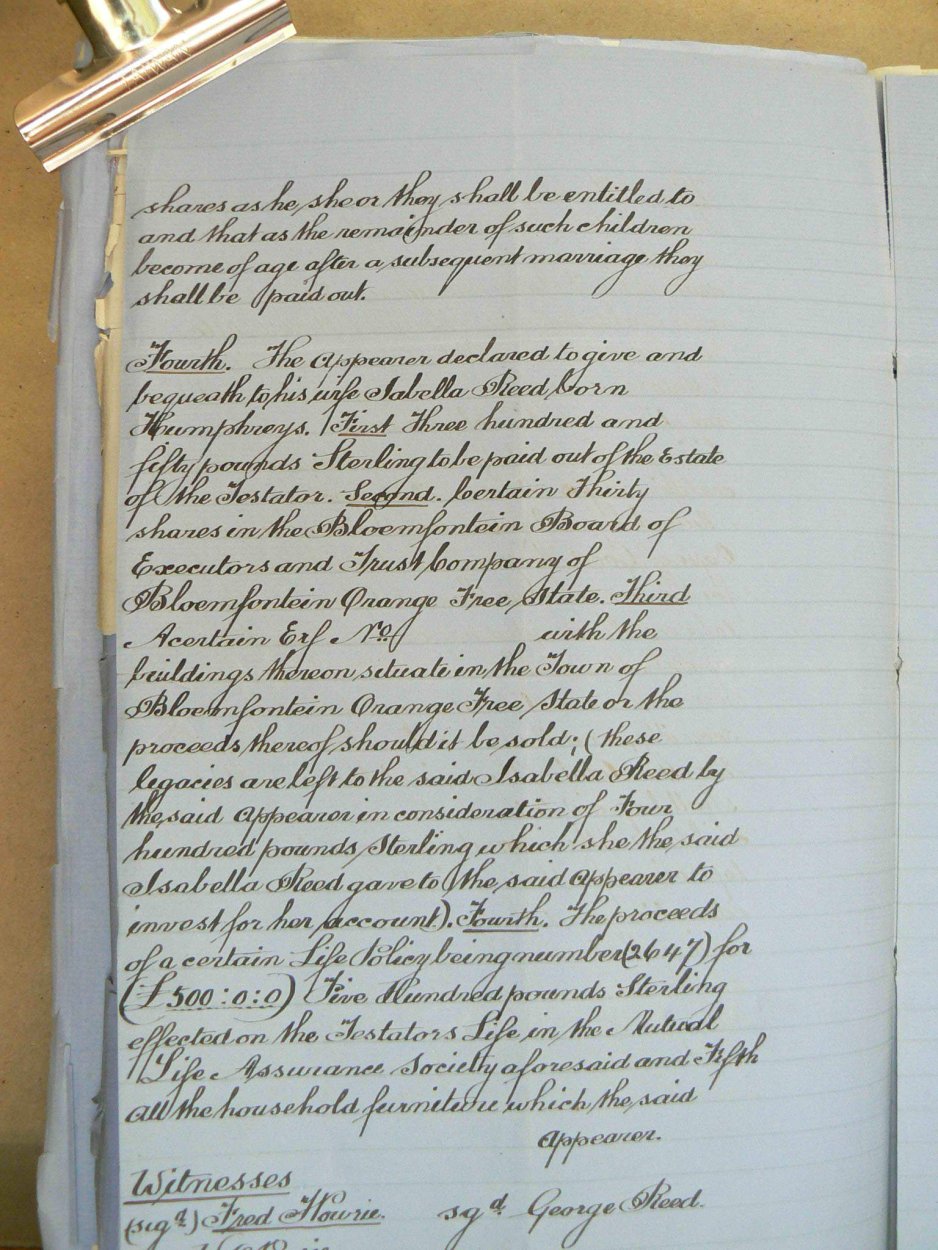 shares as he, she or they shall be entitled to
and that as the remainder of such children
become of age after a subsequent marriage they
shall be paid out.
Fourth. The Appearer declared to give and
bequeath to his wife Isabella Reed born
Humphreys. First Three hundred and
fifty pounds Sterling to be paid out of the Estate
of the Testator. Second. Certain Thirty
shares in the Bloemfontein Board of
Executors and Trust Company of
Bloemfontein Orange Free State. Third
A certain Erf No with the
buildings thereon situate in the Town of
Bloemfontein Orange Free State or the
proceeds thereof should it be sold; (these
legacies are left to the said Isabella Reed by
the said Appearer in consideration of Four
hundred pounds Sterling which she the said
Isabella Reed gave to the said Appearer to
invest for her account). Fourth. The proceeds
of a certain Life Policy being number (2647) for
(£500:0:0) Five Hundred pounds Sterling
effected on the Testators Life in the Mutual
Life Assurance Society aforesaid and Fifth
all the household furniture which the said
Appearer.
Witnesses
(sigd) Fred Howrie. sgd George Reed.